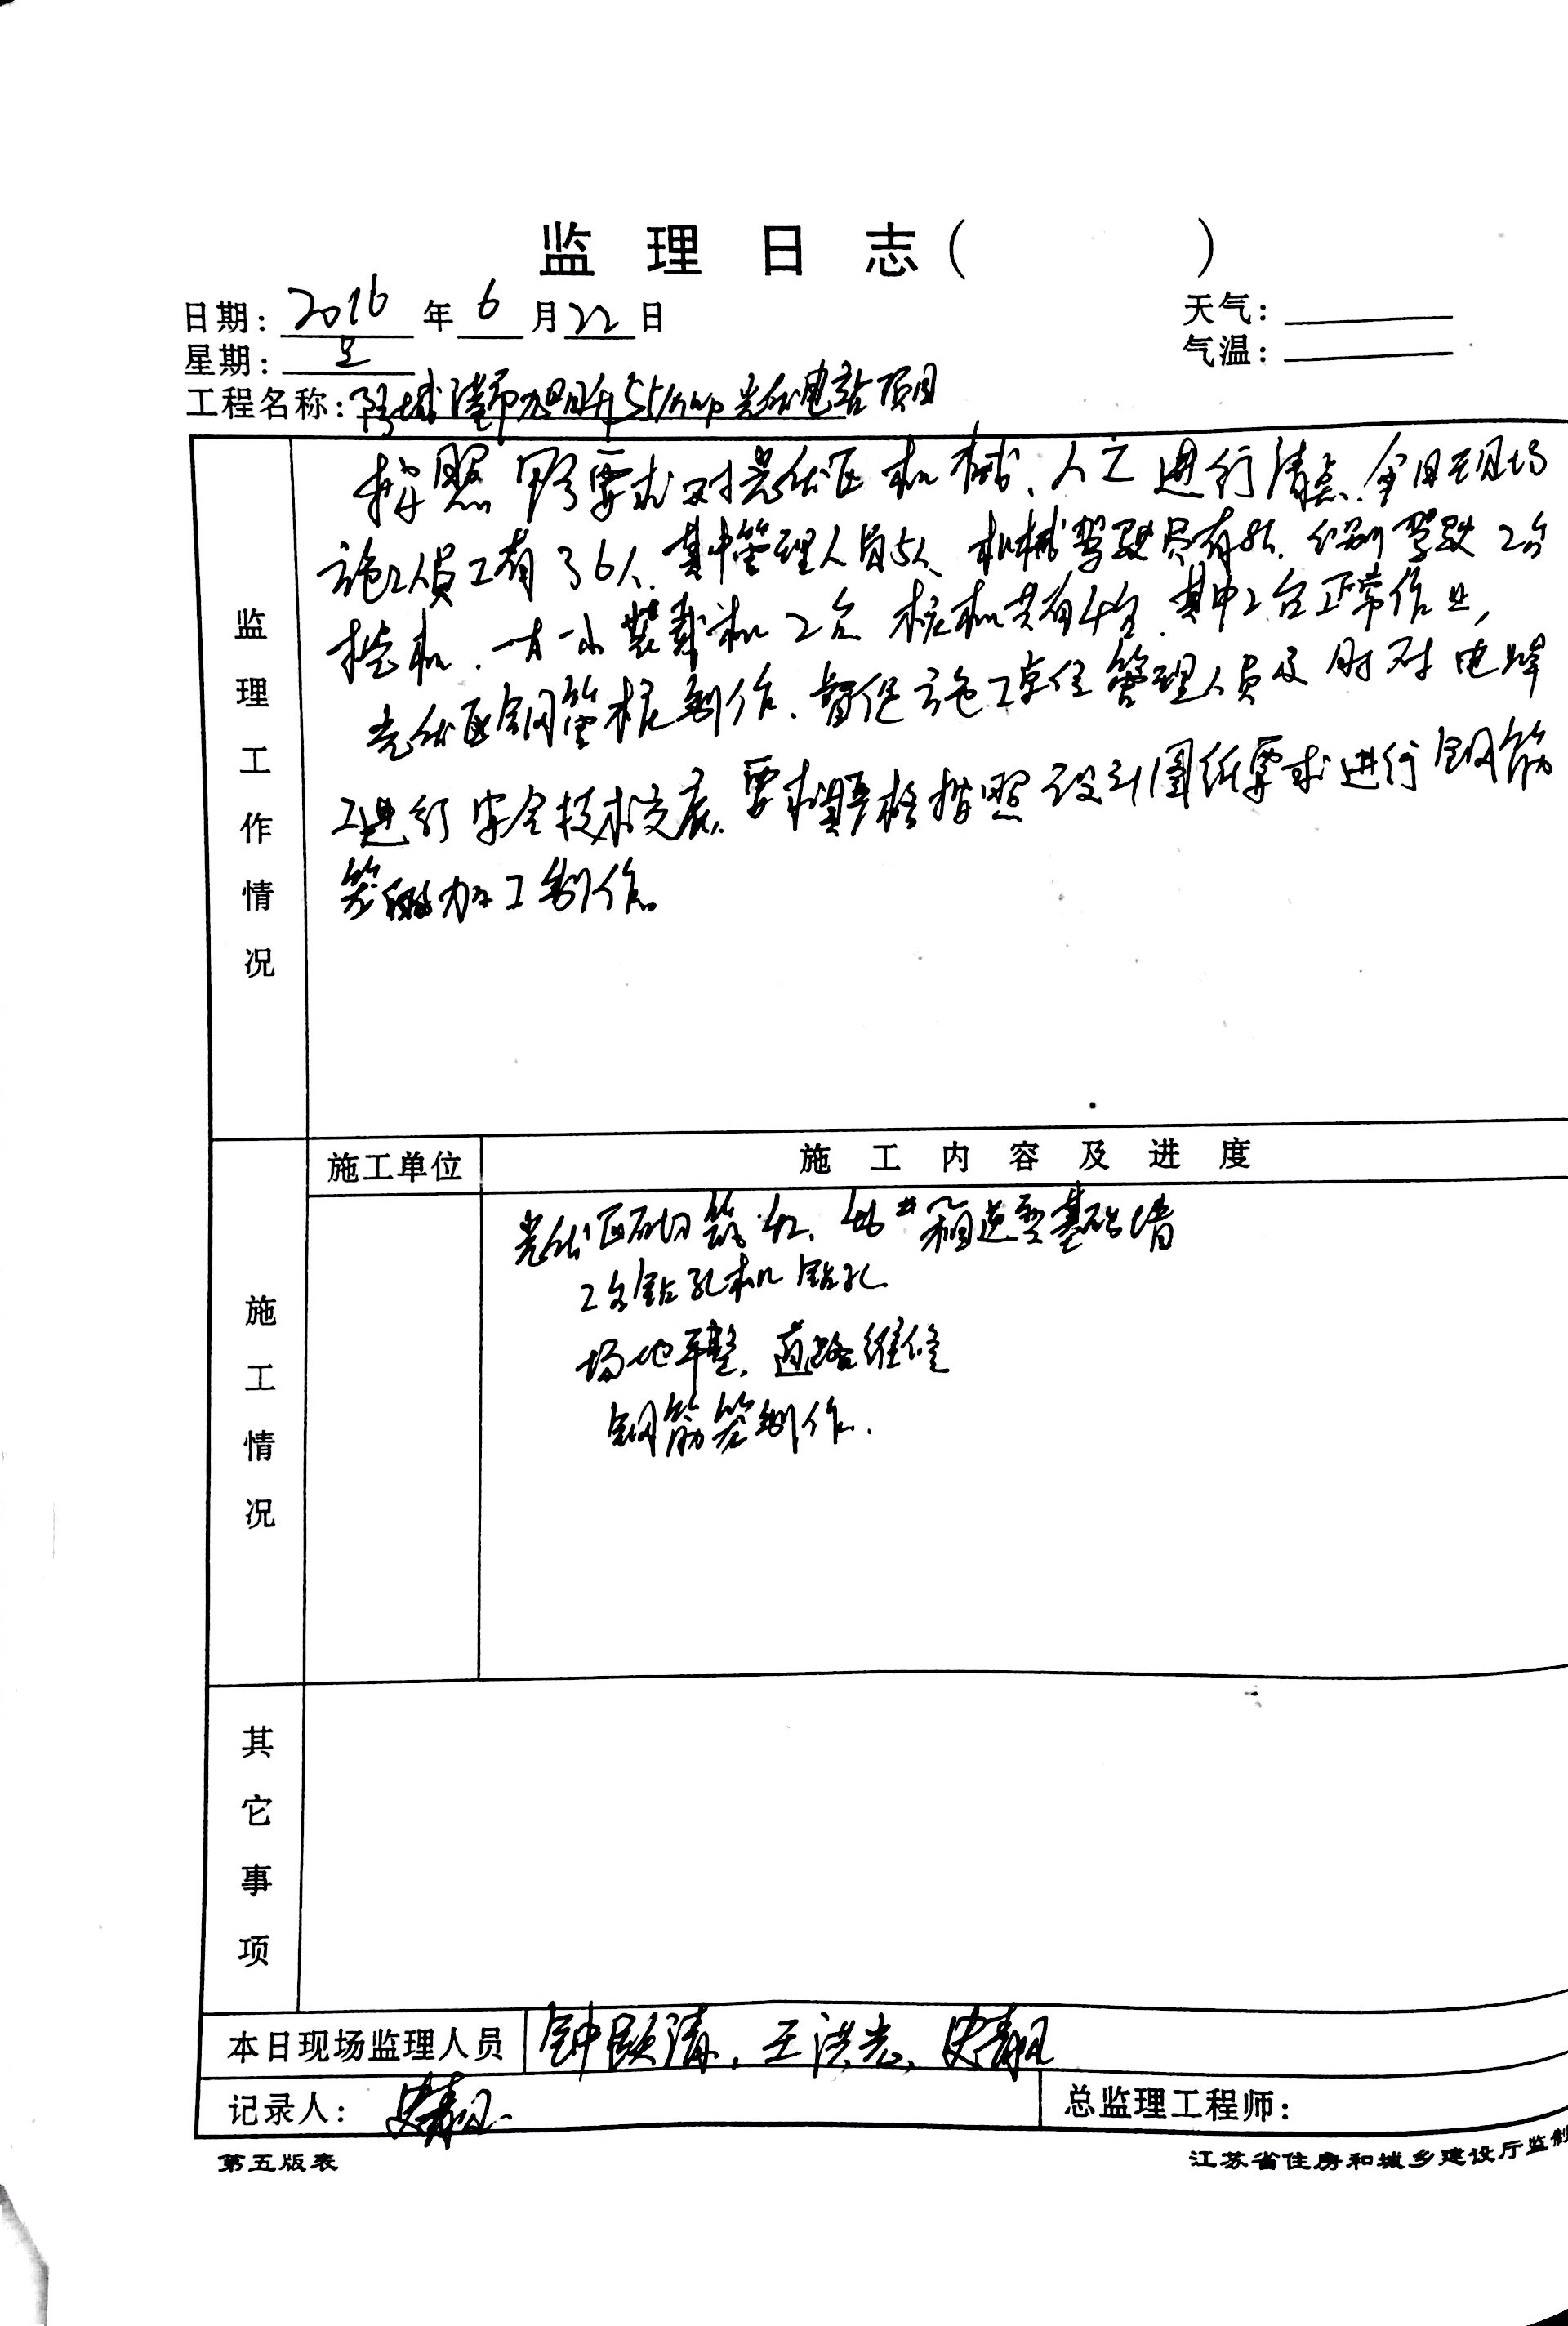 监理日志( )
日期: 2016 年 6 月 22 日
天气:
星期: 三
气温:
工程名称: 防城港市旭升55MWp光伏电站项目
监理工作情况
按照甲方要求对光伏区机械、人工进行清点.今日现场
施工人员工有36人.其中管理人员5人、机械驾驶员有8人.分别驾驶2台
挖机.一大一小装载机2台 桩机共有4台.其中2台正常作业,
光伏区钢管桩制作.督促施工单位管理人员及时对电焊
工进行安全技术交底.要求严格按照设计图纸要求进行钢筋
笼加工制作.
施工单位
施工内容及进度
施工情况
光伏区砌筑 箱逆变基础墙
2台钻孔机钻孔
场地平整.道路维修
钢筋笼制作.
其它事项
本日现场监理人员 钟 清、王洪光、史
记录人: 史
总监理工程师:
第五版表
江苏省住房和城乡建设厅监制